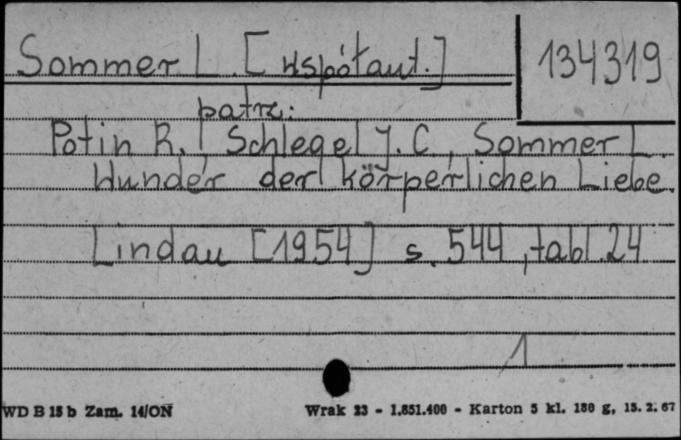 Sommer L. [współaut.]
134319
patrz:
Potin R., Schlegel J. C., Sommer L.
Wunder der körperlichen Liebe.
Lindau [1954] s. 544, tabl. 24
1
WD B 15 b Zam. 14/ON
Wrak 23 - 1.851.400 - Karton 5 kl. 180 g, 15. 2. 67